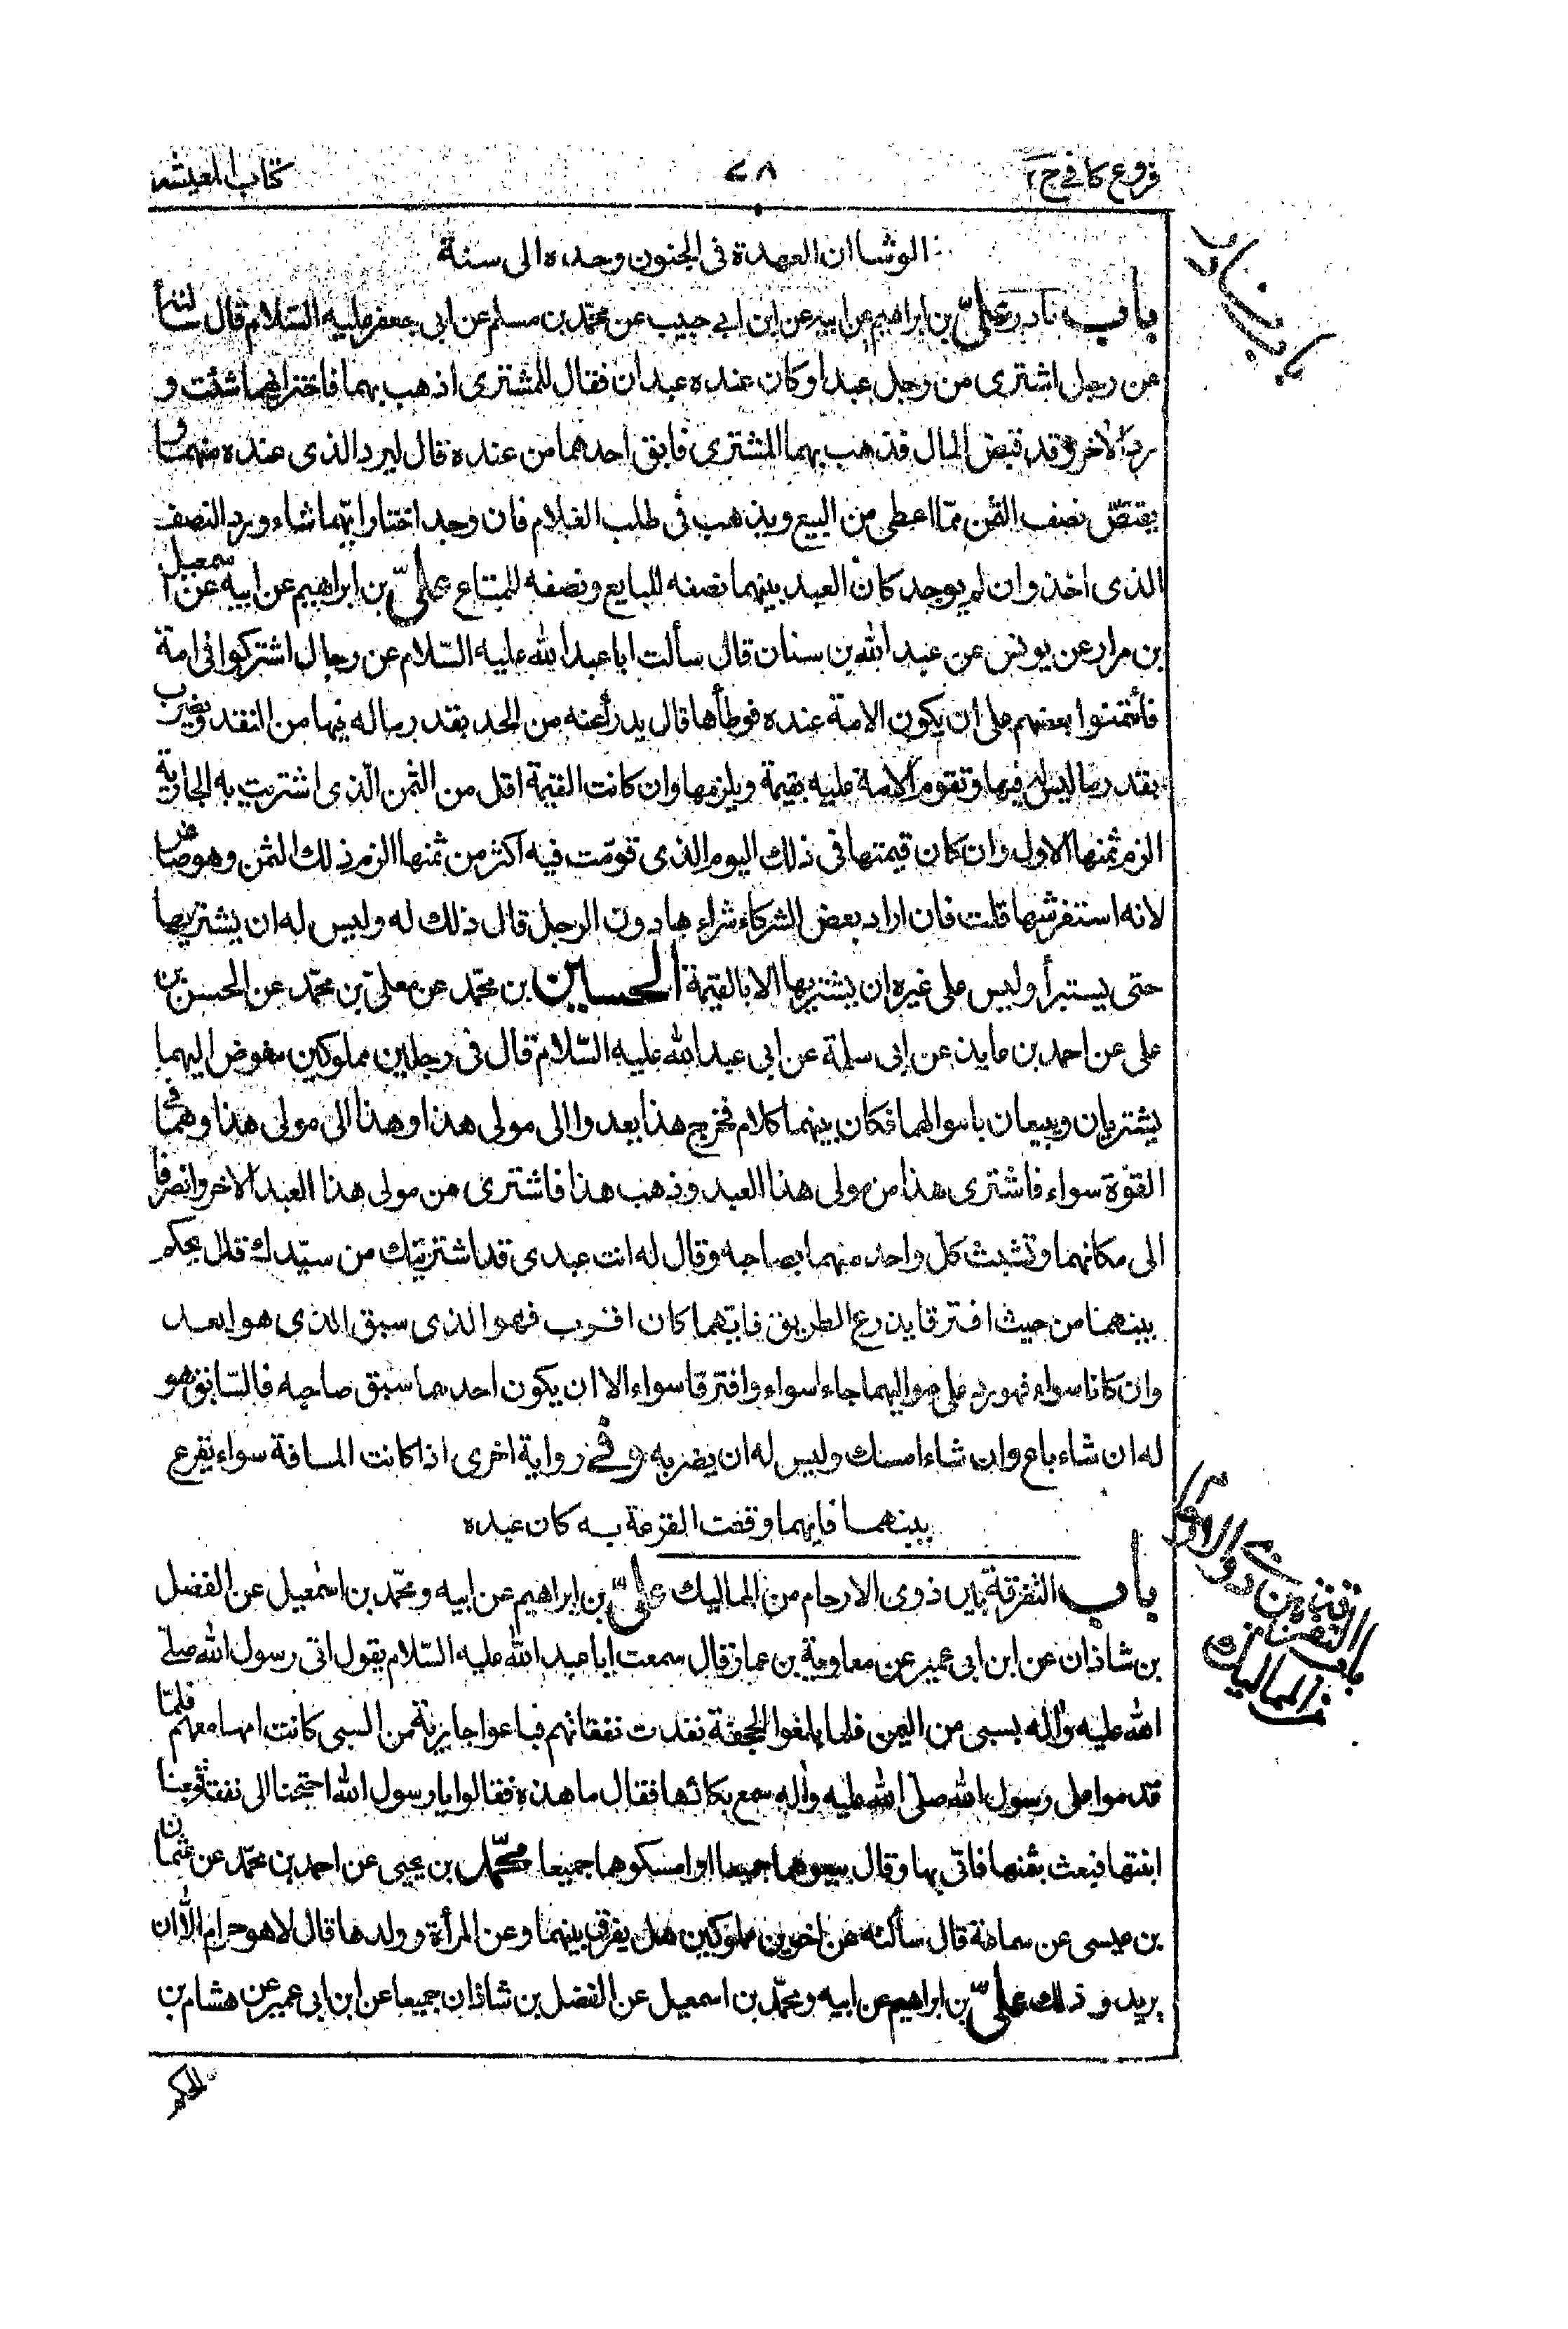 فروع كافي ج ٢
٧٨
كتاب المعيشه
الوشا ان العهدة فى الجنون وحده الى سنة
باب نادر علىّ بن ابراهيم عن ابيه عن ابن ابي حبيب عن محمّد بن مسلم عن ابى جعفر عليه السّلام قال سألته
عن رجل اشترى من رجل عبدا وكان عنده عبدان فقال للمشترى اذهب بهما فاختر ايّهما شئت و
ردّ الاخر وقد قبض المال فذهب بهما المشترى فابق احدهما من عنده قال ليرد الذى عنده منهما و
يقتضّ نصف الثمن ممّا اعطى من البيع ويذهب فى طلب الغلام فان وجد اختار ايّهما شاء ويرد النصف
الذى اخذ وان لم يوجد كان العبد بينهما نصفه للبايع ونصفه للمبتاع علىّ بن ابراهيم عن ابيه عن اسمعيل
بن مرار عن يونس عن عبد الله بن سنان قال سألت ابا عبد الله عليه السّلام عن رجال اشتركوا فى امة
فائتمنوا بعضهم على ان يكون الامة عنده فوطأها قال يدرأ عنه من الحد بقدر ماله فيها من النقد ويضرب
بقدر ما ليس له فيها وتقوم الامة عليه بقيمة ويلزمها وان كانت القيمة اقل من الثمن الّذى اشتريت به الجارية
الزم ثمنها الاول وان كان قيمتها فى ذلك اليوم الذى قوّمت فيه اكثر من ثمنها الزم ذلك الثمن وهو صاغر
لانه استفرشها قلت فان اراد بعض الشركاء شراءها دون الرجل قال ذلك له وليس له ان يشتريها
حتى يستبرأ وليس على غيره ان يشتريها الا بالقيمة الحسين بن محمّد عن معلىّ بن محمّد عن الحسن بن
على عن احمد بن عايذ عن ابى سلمة عن ابى عبد الله عليه السّلام قال فى رجلين مملوكين مفوض اليهما
يشتريان ويبيعان باموالهما فكان بينهما كلام فخرج هذا يعدوا الى مولى هذا وهذا الى مولى هذا وهما فى
القوّة سواء فاشترى هذا من مولى هذا العبد وذهب هذا فاشترى من مولى هذا العبد الاخر وانصرفا
الى مكانهما وتشبث كلّ واحد منهما بصاحبه وقال له انت عبدى قد اشتريتك من سيّدك قال يحكم
بينهما من حيث افترقا يذرع الطريق فايّهما كان اقرب فهو الذى سبق الذى هو ابعد
وان كانا سواء فهو رد على مواليهما جاءا سواء وافترقا سواء الا ان يكون احدهما سبق صاحبه فالسّابق هو
له ان شاء باع وان شاء امسك وليس له ان يضربه وفي رواية اخرى اذا كانت المسافة سواء يقرع
بينهما فايّهما وقعت القرعة به كان عبده
باب التفرقة بين ذوى الارحام من المماليك علىّ بن ابراهيم عن ابيه ومحمّد بن اسمعيل عن الفضل
بن شاذان عن ابن ابى عمير عن معاوية بن عمار قال سمعت ابا عبد الله عليه السّلام يقول اتى رسول الله صلى
الله عليه وآله بسبى من اليمن فلما بلغوا الجحفة نفدت نفقاتهم فباعوا جارية من السبى كانت امها معهم فلمّا
قدموا على رسول الله صلّى الله عليه وآله سمع بكائها فقال ما هذه فقالوا يا رسول الله احتجنا الى نفقة فبعنا
ابنتها فبعث بثمنها فاتى بها وقال بيعوهما جميعا او امسكوهما جميعا محمّد بن يحيى عن احمد بن محمّد عن عثمان
بن عيسى عن سماعة قال سألته عن اخوين مملوكين هل يفرق بينهما وعن المرأة وولدها قال لا هو حرام الّا ان
يريدو ذلك علىّ بن ابراهيم عن ابيه ومحمّد بن اسمعيل عن الفضل بن شاذان جميعا عن ابن ابى عمير عن هشام بن
الحكم
باب نادر
باب التفرقة بين ذوي الارحام
من المماليك